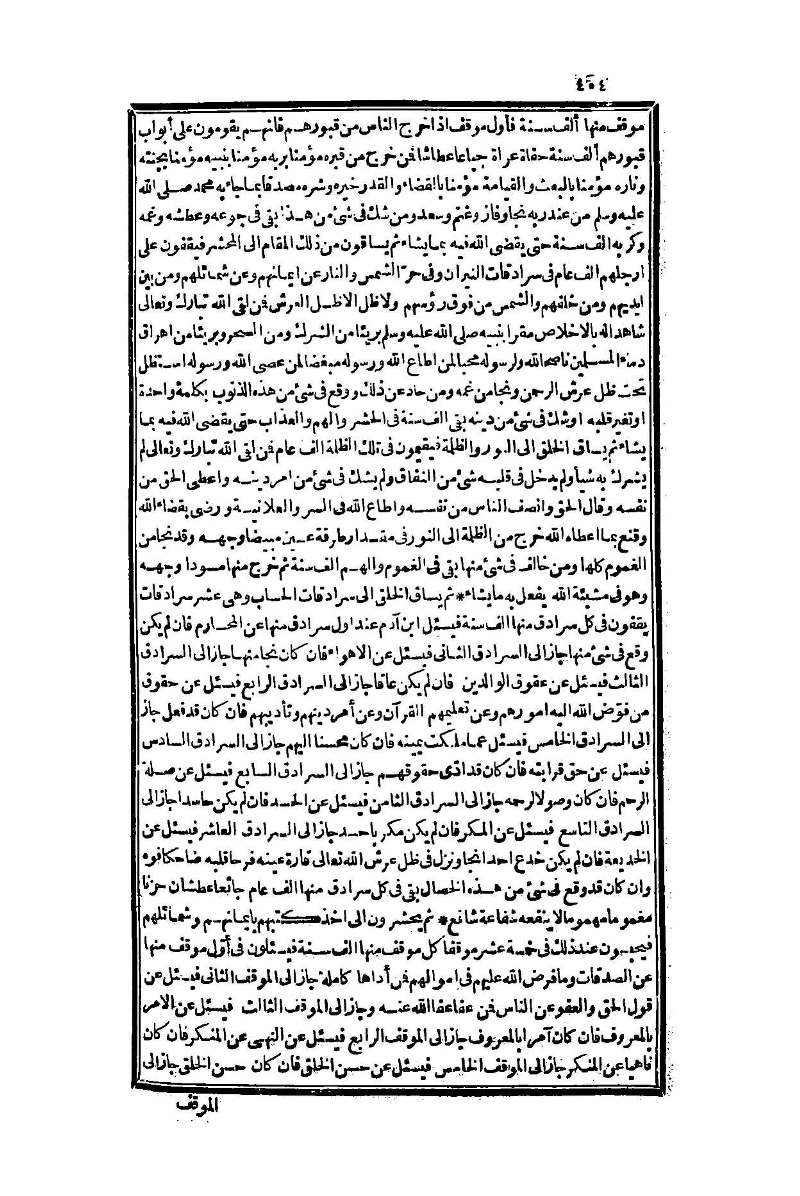 ٤٠٤
موقف منها ألف سنة فأول موقف اذا خرج الناس من قبورهم فانهم يقومون على أبواب
قبورهم ألف سنة حفاة عراة جياعا عطاشا فمن خرج من قبره مؤمنا بربه مؤمنا بنبيه مؤمنا بجنته
وناره مؤمنا بالبعث والقيامة مؤمنا بالقضاء والقدر خيره وشره مصدقا بما جاء به محمد صلى الله
عليه وسلم من عند ربه نجا وفاز وغنم وسعد ومن شك فى شئ من هذا بقى فى جوعه وعطشه وغمه
وكربه الف سنة حتى يقضى الله فيه بما يشاء ثم يساقون من ذلك المقام الى المحشر فيقفون على
ارجلهم الف عام فى سرادقات النيران وفى حر الشمس والنار عن ايمانهم وعن شمائلهم ومن بين
ايديهم ومن خلفهم والشمس من فوق رؤسهم ولا ظل الا ظل العرش فمن لقى الله تبارك وتعالى
شاهدا له بالاخلاص مقرا بنبيه صلى الله عليه وسلم بريئا من الشرك ومن السحر وبريئا من اهراق
دماء المسلمين ناصحا لله ولرسوله محبا لمن اطاع الله ورسوله مبغضا لمن عصى الله ورسوله استظل
تحت ظل عرش الرحمن ونجا من غمه ومن حاد عن ذلك ووقع فى شئ من هذه الذنوب بكلمة واحدة
او تغير قلبه او شك فى شئ من دينه بقى الف سنة فى الحشر والهم والعذاب حتى يقضى الله فيه بما
يشاء ثم يساق الخلق الى النور والظلمة فيقيمون فى تلك الظلمة الف عام فمن لقى الله تبارك وتعالى لم
يشرك به شيأ ولم يدخل فى قلبه شئ من النفاق ولم يشك فى شئ من امر دينه واعطى الحق من
نفسه وقال الحق وانصف الناس من نفسه واطاع الله فى السر والعلانية ورضى بقضاء الله
وقنع بما اعطاه الله خرج من الظلمة الى النور فى مقدار طرفة عين مبيضا وجهه وقد نجا من
الغموم كلها ومن خالف فى شئ منها بقى فى الغموم والهم الف سنة ثم خرج منها مسودا وجهه
وهو فى مشيئة الله يفعل به ما يشاء * ثم يساق الخلق الى سرادقات الحساب وهى عشر سرادقات
يقفون فى كل سرادق منها الف سنة فيسئل ابن آدم عند اول سرادق منها عن المحارم فان لم يكن
وقع فى شئ منها جاز الى السرادق الثانى فيسئل عن الاهواء فان كان نجا منها جاز الى السرادق
الثالث فيسئل عن عقوق الوالدين فان لم يكن عاقا جاز الى السرادق الرابع فيسئل عن حقوق
من فوض الله اليه امورهم وعن تعليمهم القرآن وعن أمر دينهم وتأديبهم فان كان قد فعل جاز
الى السرادق الخامس فيسئل عما ملكت يمينه فان كان محسنا اليهم جاز الى السرادق السادس
فيسئل عن حق قرابته فان كان قد ادى حقوقهم جاز الى السرادق السابع فيسئل عن صلة
الرحم فان كان وصولا لرحمه جاز الى السرادق الثامن فيسئل عن الحسد فان لم يكن حاسدا جاز الى
السرادق التاسع فيسئل عن المكر فان لم يكن مكر باحد جاز الى السرادق العاشر فيسئل عن
الخديعة فان لم يكن خدع احدا نجا ونزل فى ظل عرش الله تعالى قارة عينه فرحا قلبه ضاحكا فوه
وان كان قد وقع فى شئ من هذه الخصال بقى فى كل سرادق منها الف عام جائعا عطشان حزنا
مغموما مهموما لا ينفعه شفاعة شافع * ثم يحشرون الى اخذ كتبهم بايمانهم وشمائلهم
فيحبسون عند ذلك فى خمسة عشر موقفا كل موقف منها الف سنة فيسئلون فى أول موقف منها
عن الصدقات وما فرض الله عليهم فى اموالهم فمن أداها كاملة جاز الى الموقف الثانى فيسئل عن
قول الحق والعفو عن الناس فمن عفا عفا الله عنه وجاز الى الموقف الثالث فيسئل عن الامر
بالمعروف فان كان آمرا بالمعروف جاز الى الموقف الرابع فيسئل عن النهى عن المنكر فان كان
ناهيا عن المنكر جاز الى الموقف الخامس فيسئل عن حسن الخلق فان كان حسن الخلق جاز الى
الموقف